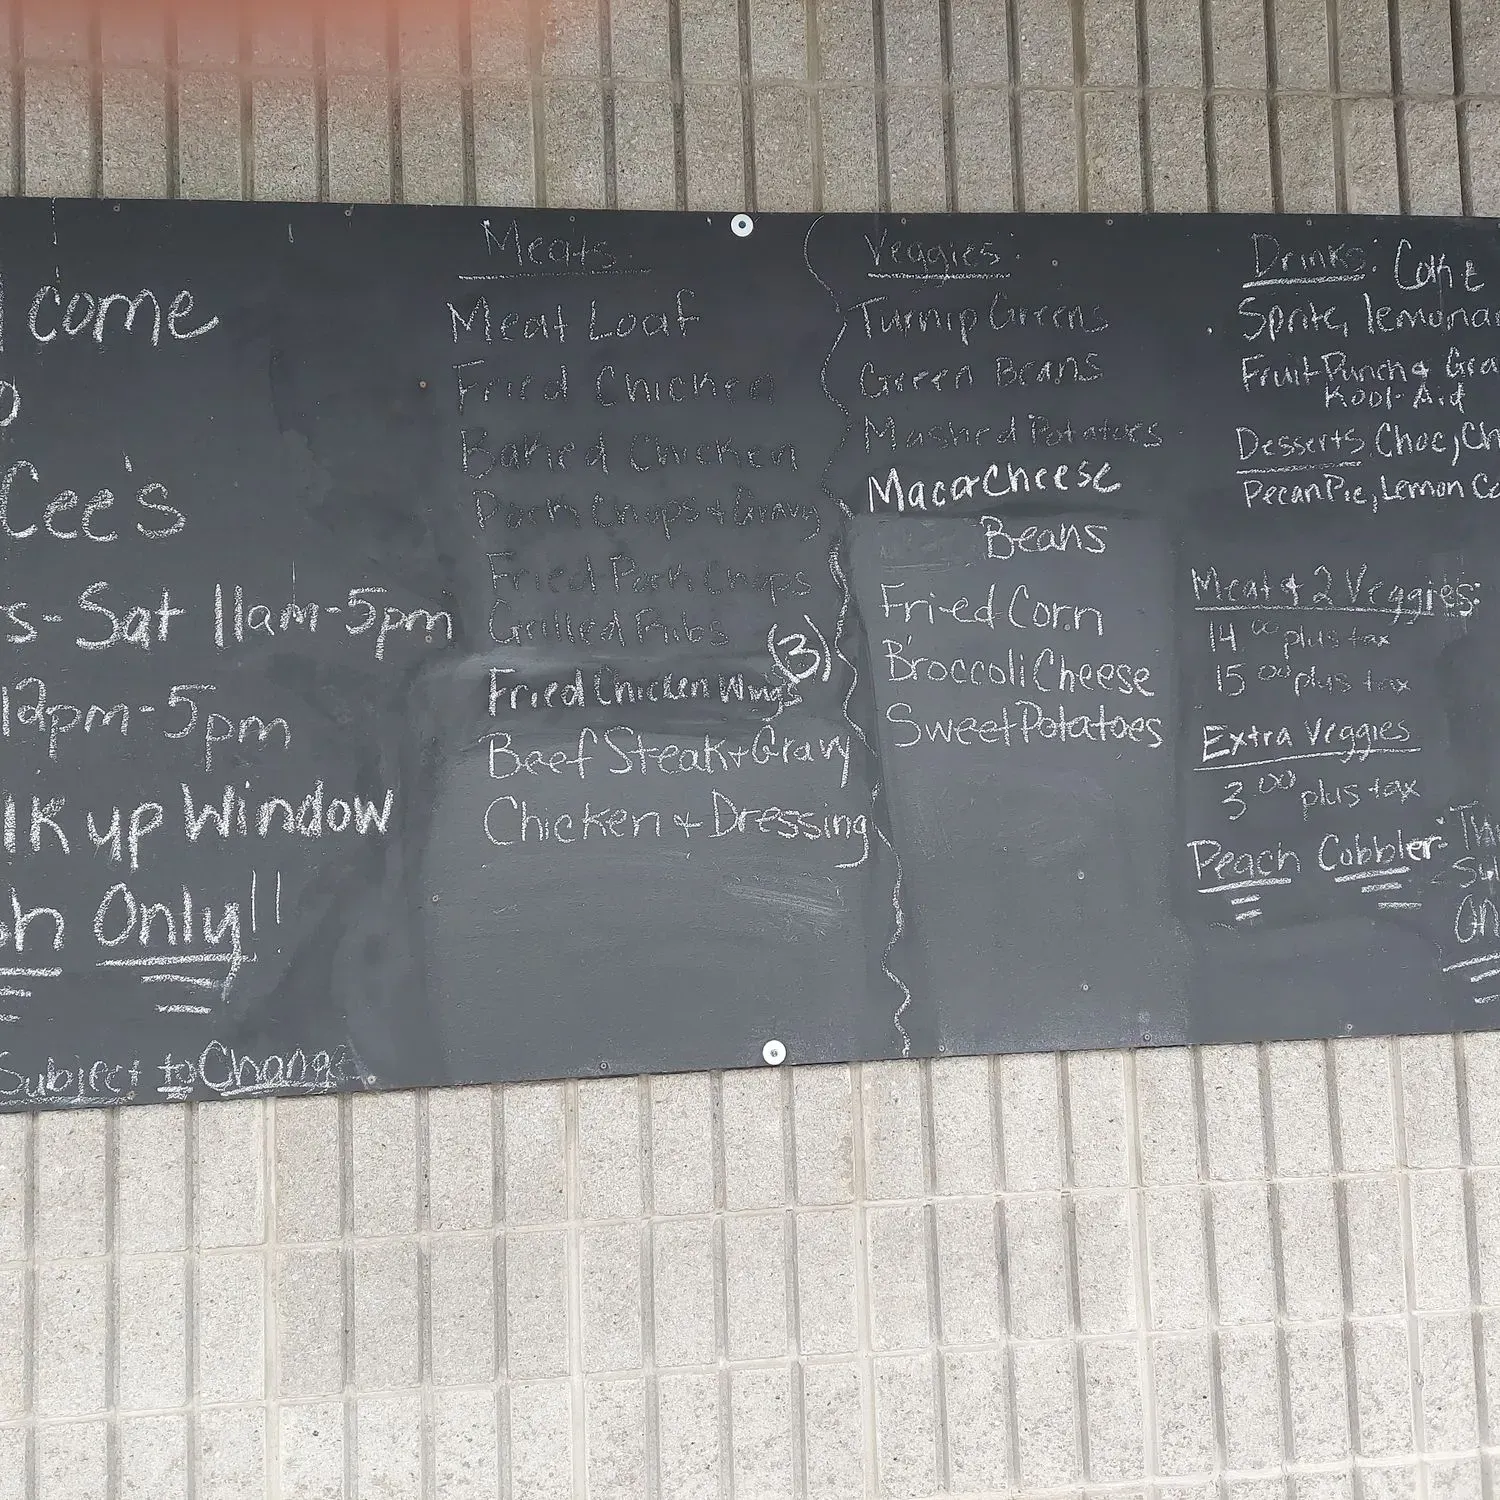 come
Cee's
s-Sat 11am-5pm
12pm-5pm
lk up Window
Only!!
Subject to Change
Meats:
Meat Loaf
Fried Chicken
Baked Chicken
Pork Chops + Gravy
Fried Pork Chops
Grilled Ribs
Fried Chicken Wings (3)
Beef Steak + Gravy
Chicken + Dressing
Veggies:
Turnip Greens
Green Beans
Mashed Potatoes
Mac & Cheese
Beans
Fried Corn
Broccoli Cheese
Sweet Potatoes
Drinks: Coke
Sprite, lemona
Fruit Punch & Gra
Kool-Aid
Desserts Choc, Ch
Pecan Pie, Lemon Ca
Meat & 2 Veggies:
14 00 plus tax
15 00 plus tax
Extra Veggies
3 00 plus tax
Peach Cobbler: